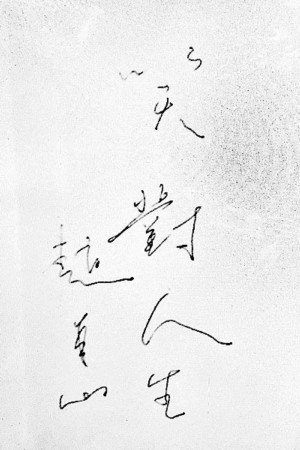 笑對人生
趙本山